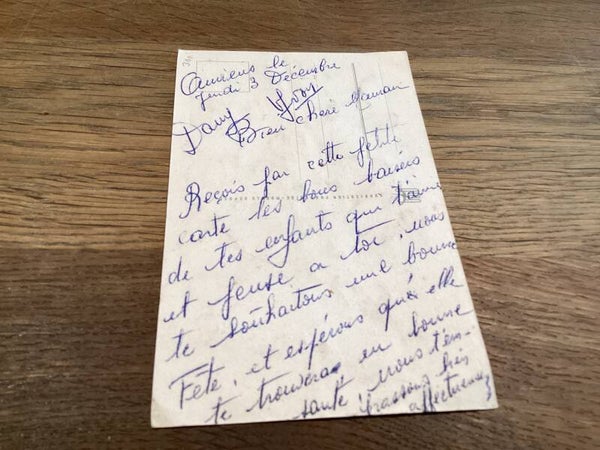 Amiens le
Jeudi 3 Décembre
Dany
Bien chère Maman
Reçois par cette petite
carte les bons baisers
de tes enfants qui t'aime
et pense a toi, nous
te souhaitons une bonne
Fête, et espérons qu'elle
te trouvera en bonne
santé, nous t'em-
brassons très
affectueus